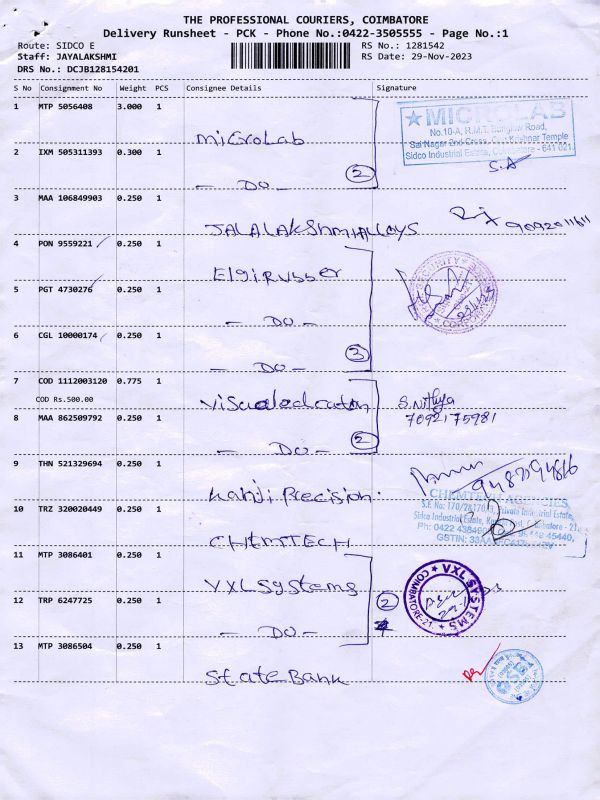 THE PROFESSIONAL COURIERS, COIMBATORE
Delivery Runsheet - PCK - Phone No.:0422-3505555 - Page No.:1
Route: SIDCO E
RS No.: 1281542
Staff: JAYALAKSHMI
RS Date: 29-Nov-2023
DRS No.: DCJB128154201
S No Consignment No Weight PCS Consignee Details Signature
1 MTP 5056408 3.000 1 MicroLab
MICROLAB
No.10-A, R.M.T. Bunglow Road,
Sai Nagar 2nd Cross, Krishnar Temple
Sidco Industrial Estate, Coimbatore - 641 021.
S.A
2 IXM 505311393 0.300 1 - DO - 2
3 MAA 106849903 0.250 1 JALALAKShmiALLOYS
4 PON 9559221 0.250 1 Elgirubber
SECURITY
5 PGT 4730276 0.250 1 - DO -
6 CGL 10000174 0.250 1 - DO - 3
7 COD 1112003120 0.775 1 Visualeducation S.Nithya
COD Rs.500.00
7092175981
8 MAA 862509792 0.250 1 - DO - 2
9 THN 521329694 0.250 1 Kanji Precision.
CHEMTECH AGENCIES
S.F. No: 170/2B170/3, Private Industrial Estate,
Sidco Industrial Estate, Coimbatore - 21.
10 TRZ 320020449 0.250 1 CHEMTECH
11 MTP 3086401 0.250 1 VXLSystems
VXL SYSTEMS
COIMBATORE-21
12 TRP 6247725 0.250 1 - DO - 2
13 MTP 3086504 0.250 1 State Bank